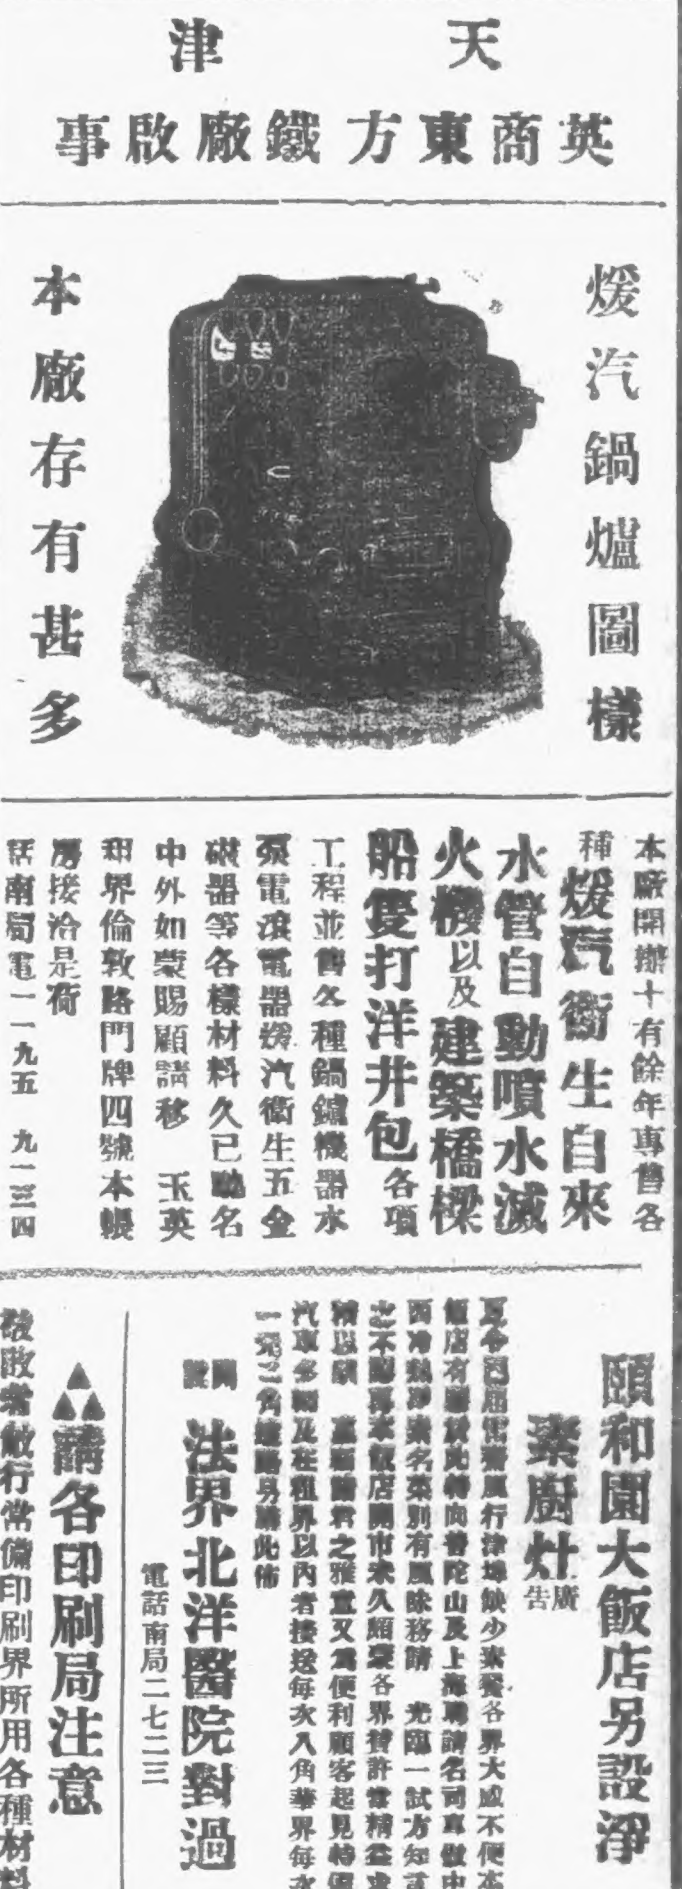 天津
英商東方鐵廠啟事
煖汽鍋爐圖樣
本廠存有甚多
本廠開辦十有餘年專售各
種煖汽衛生自來
水管自動噴水滅
火機以及建築橋樑
船隻打洋井包各項
工程並售各種鍋爐機器水
泵電滾電器煖汽衛生五金
磁器等各樣材料久已馳名
中外如蒙賜顧請移 玉英
租界倫敦路門牌四號本帳
房接洽是荷
話南局電一一九五 九一三四
頤和園大飯店另設淨
素廚灶廣告
夏令已屆 風行津埠缺少素餐各界大感不便本
飯店有鑒於此特向普陀山及上海聘請名司專做中
西冷熱淨素名菜別有風味務請 光臨一試方知言
之不謬再本飯店開市未久頗蒙各界贊許當精益求
精以酬 惠顧諸君之雅意又為便利顧客起見特備
汽車多輛及在租界以內者接送每次八角華界每次
一元二角 此佈
開設
法界北洋醫院對過
電話南局二七二三
請各印刷局注意
敬啟者敝行常備印刷界所用各種材料